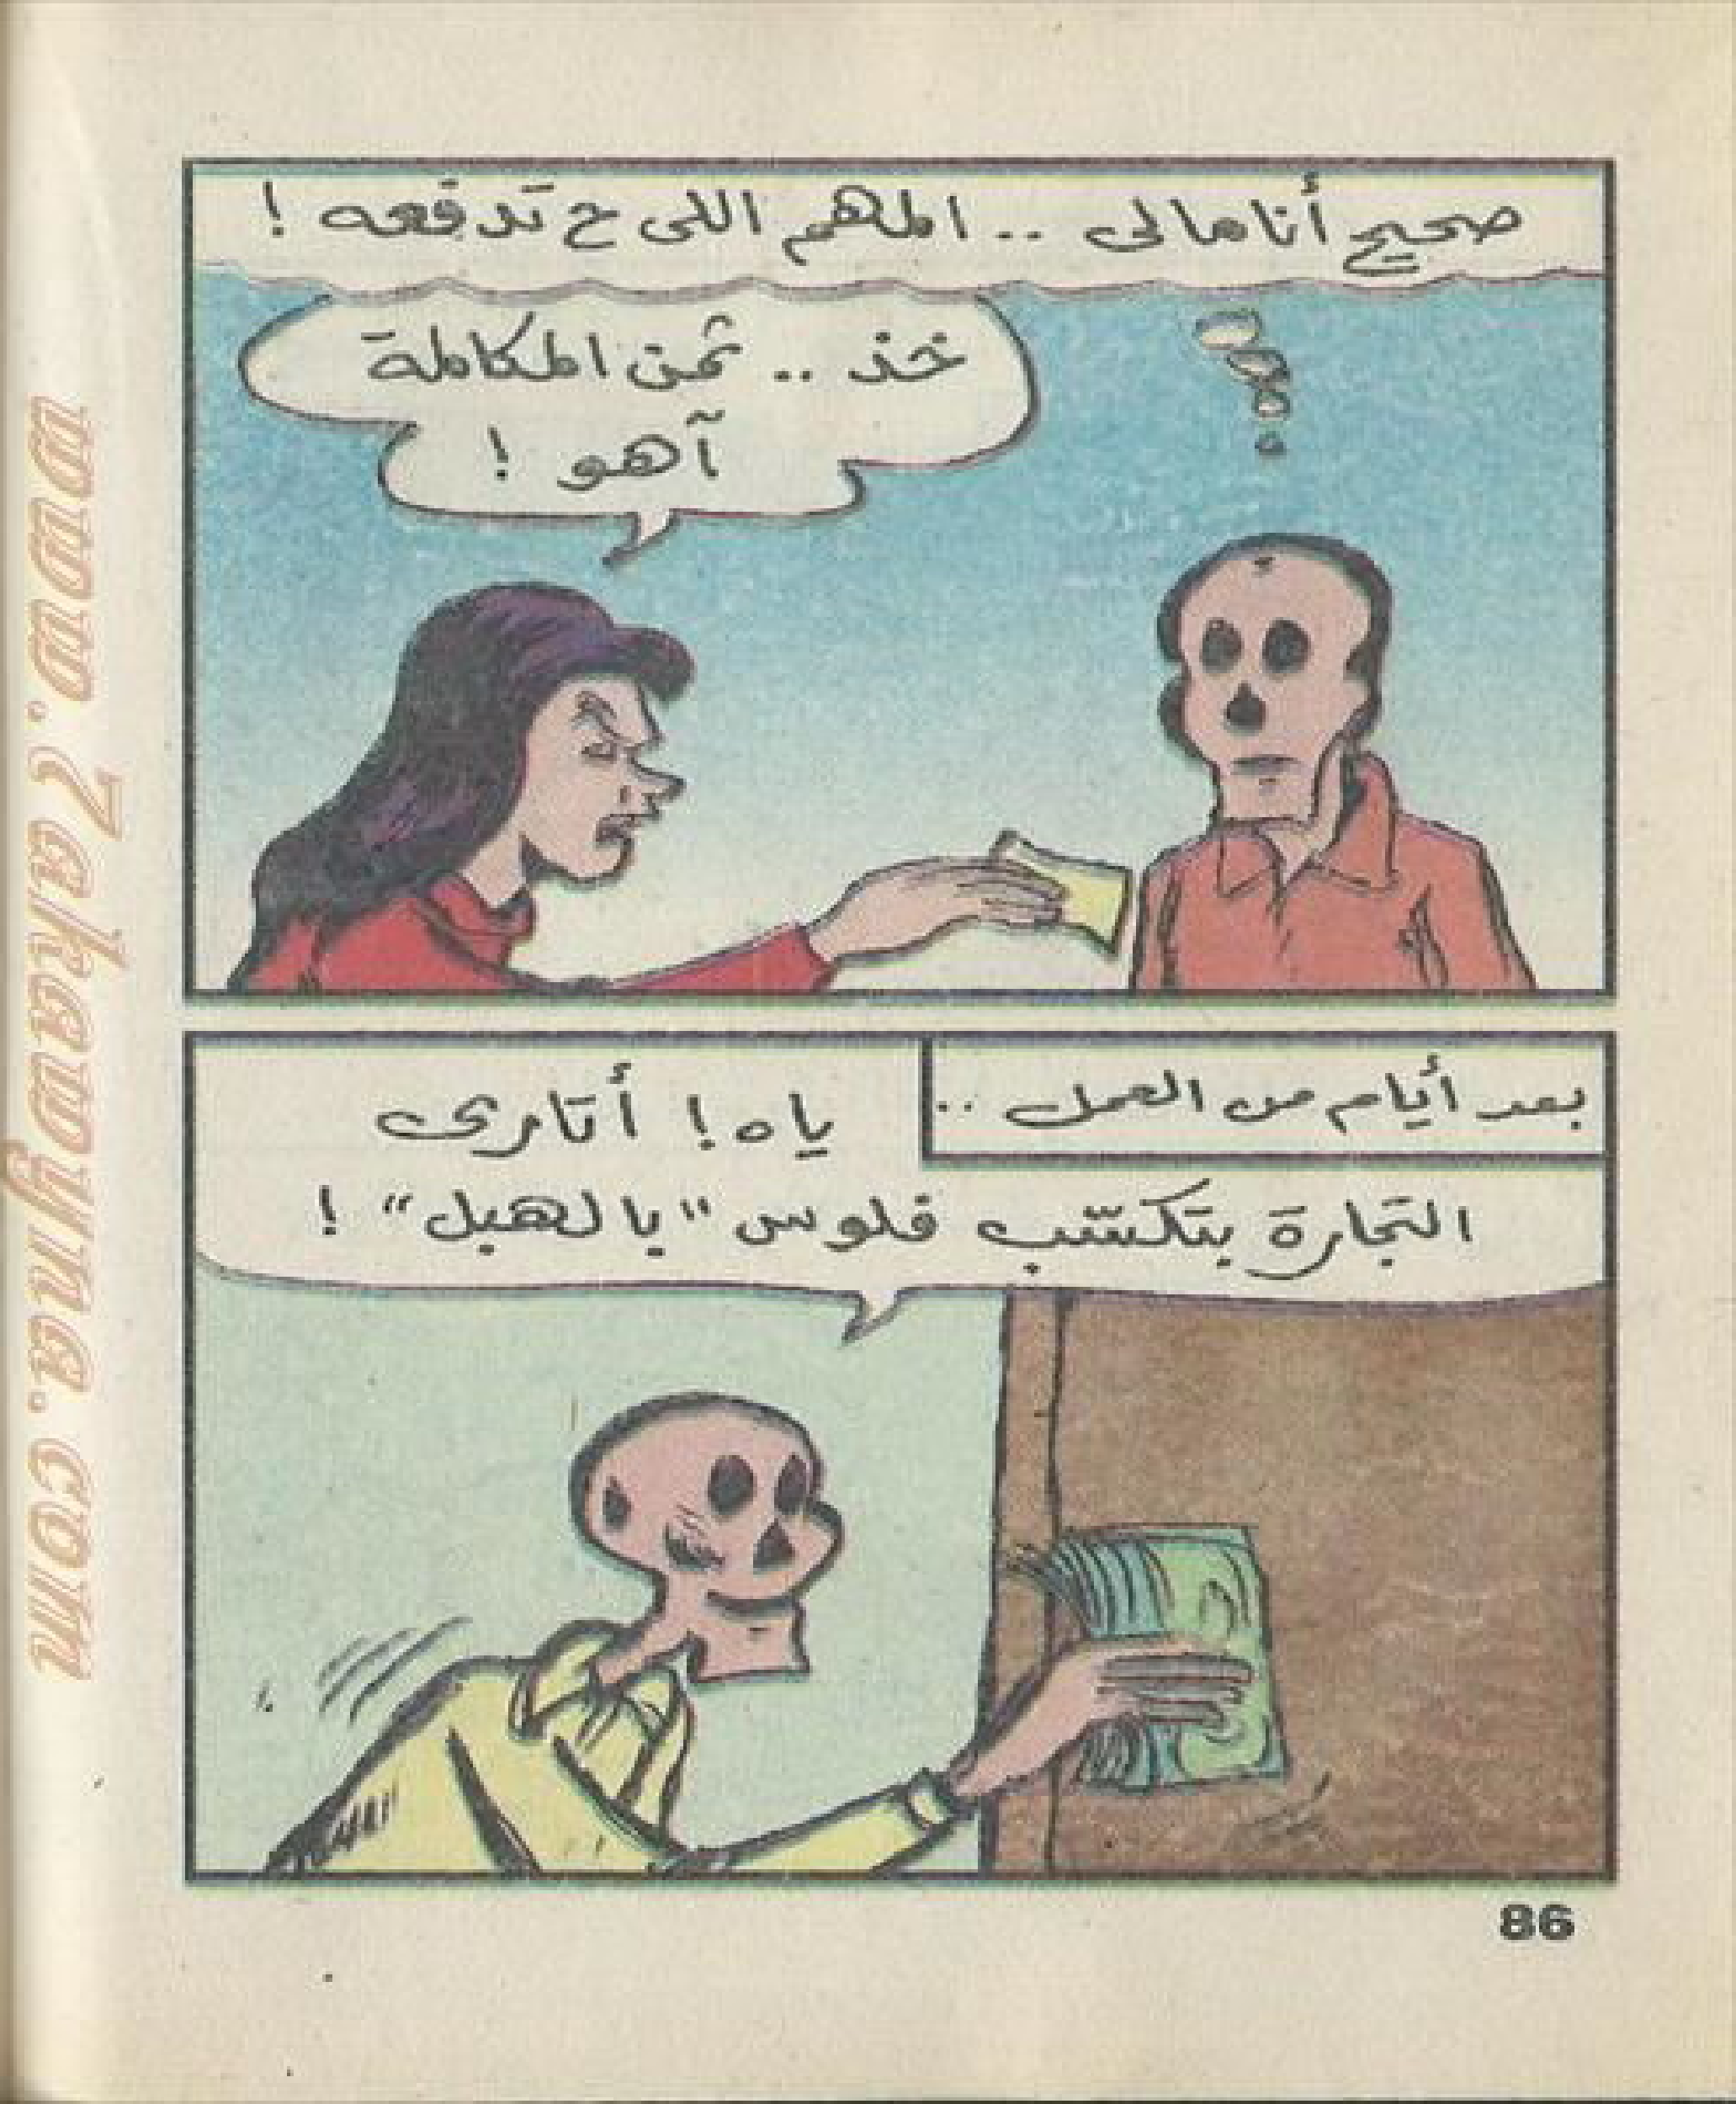 صحيح أنا مالى .. المهم اللى ح تدفعه !
خذ .. ثمن المكالمة
آهو !
بعد أيام من العمل ..
ياه ! أتارى
التجارة بتكسّب فلوس "بالهبل" !
86
www.7akawyna.com